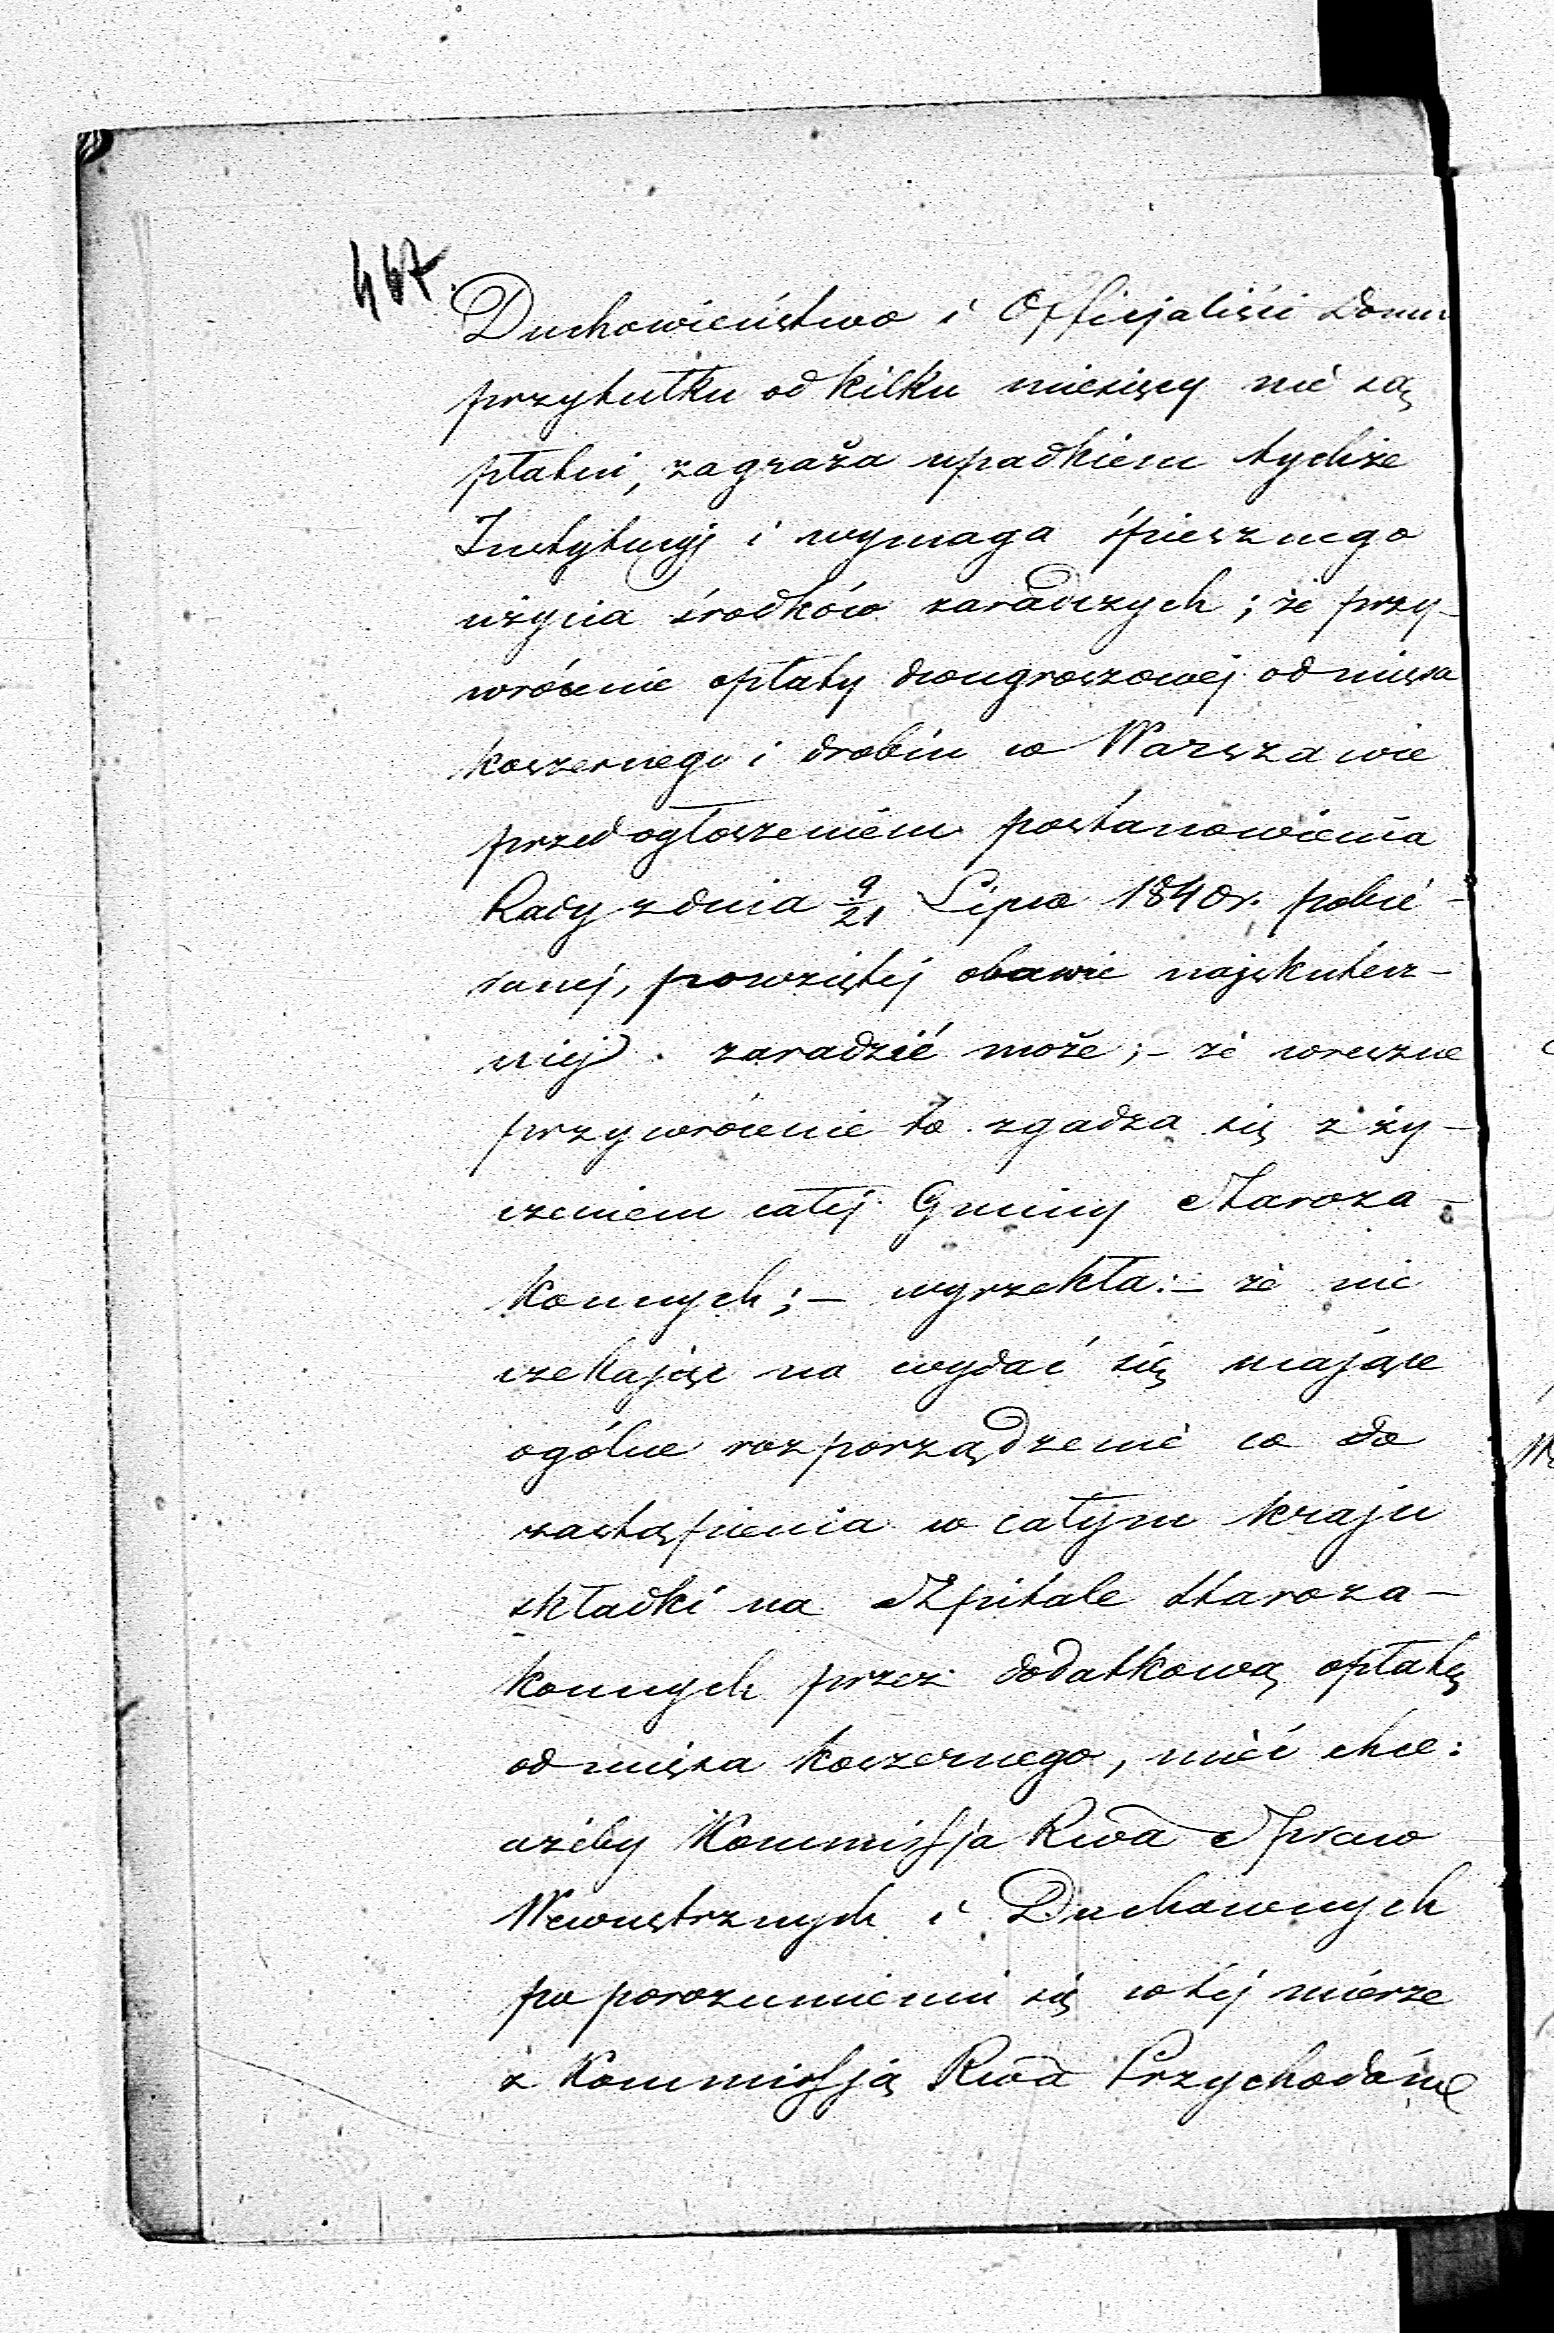 467.
Duchowieństwo i Officjaliści Domu
przytułku od kilku miesięcy nie są
płatni, zagraża upadkiem tychże
Instytucyj i wymaga śpiesznego
użycia środków zaradczych; że przy-
wrócenie opłaty dwugroszowej od mięsa
koszernego i drobiu w Warszawie
przed ogłoszeniem postanowienia
Rady z dnia 9/21 Lipca 1840 r. pobie-
ranej, powziętej obawie najskutecz-
niej zaradzić może; - że wreszcie
przywrócenie to zgadza się z ży-
czeniem całej Gminy Staroza-
konnych; - wyrzekła: - że nie
czekając na wydać się mające
ogólne rozporządzenie co do
zastąpienia w całym kraju
składki na Szpitale staroza-
konnych przez dodatkową opłatę
od mięsa koszernego, mieć chce:
ażeby Kommissja Rwa Spraw
Wewnętrznych i Duchownych
po porozumieniu się w tej mierze
z Kommissją Rwa Przychodów